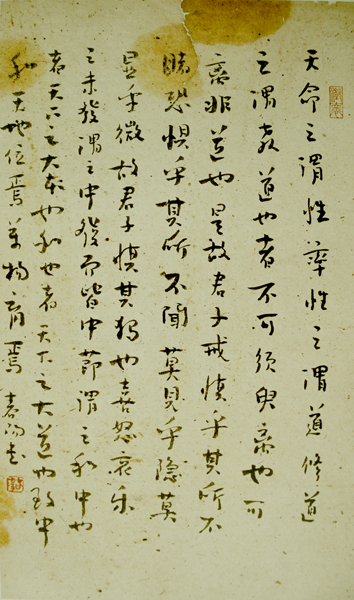 天命之謂性率性之謂道修道
之謂教道也者不可須臾离也可
离非道也是故君子戒慎乎其所不
睹恐惧乎其所不聞莫見乎隐莫
显乎微故君子慎其独也喜怒哀乐
之未發謂之中發而皆中節謂之和中也
者天下之大本也和也者天下之大道也致中
和天地位焉萬物育焉